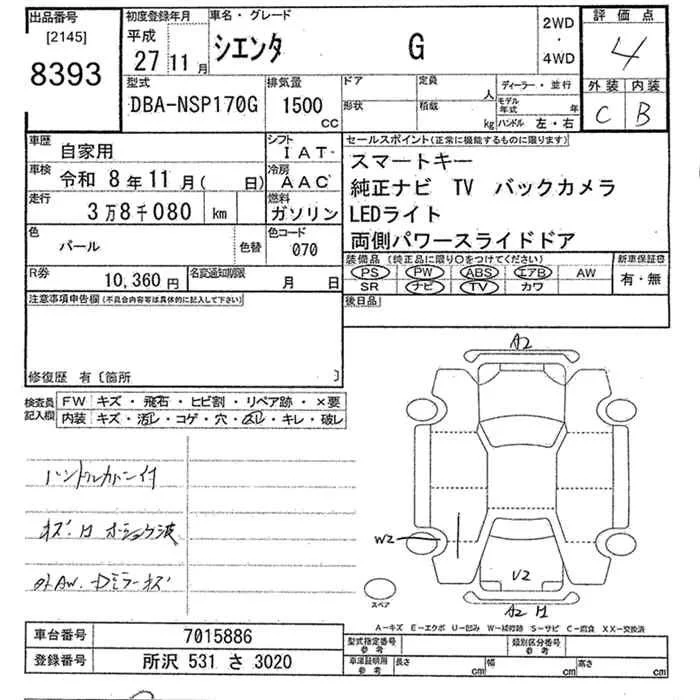 出品番号
[2145]
8393
初度登録年月
平成
27 11月
車名・グレード
シエンタ G
2WD
・
4WD
評価点
4
外装 内装
C B
型式
DBA-NSP170G
排気量
1500
cc
ドア
形状
定員
人
積載
kg
ディーラー・並行
モデル年式 年
ハンドル 左・右
車歴
自家用
シフト
IAT
車検
令和 8年11月( 日)
冷房
AAC
走行
3万8千080 km
燃料
ガソリン
色
パール
色替
色コード
070
R券
10,360円
名変通知期限
月 日
セールスポイント(正常に機能するものに限ります)
スマートキー
純正ナビ TV バックカメラ
LEDライト
両側パワースライドドア
装備品(純正品に限り○をつけてください)
PS PW ABS エアB AW
SR ナビ TV カワ
新車保証書
有・無
後日品
注意事項申告欄(不具合内容等は具体的に記入して下さい)
修復歴 有〔箇所 〕
検査員
記入欄
FW キズ・飛石・ヒビ割・リペア跡・×要
内装 キズ・汚レ・コゲ・穴・凹レ・キレ・破レ
ハンドルカバー付
A2
W2
U2
A2
スペア
A-キズ E-エクボ U-凹み W-補修跡 S-サビ C-腐食 XX-交換済
車台番号
7015886
登録番号
所沢 531 さ 3020
型式指定番号
参考
類別区分番号
参考
車庫証明用
参考
長さ cm
幅 cm
高さ cm